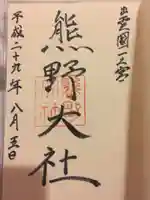 出雲國一之宮
熊野大社
平成二十九年八月五日